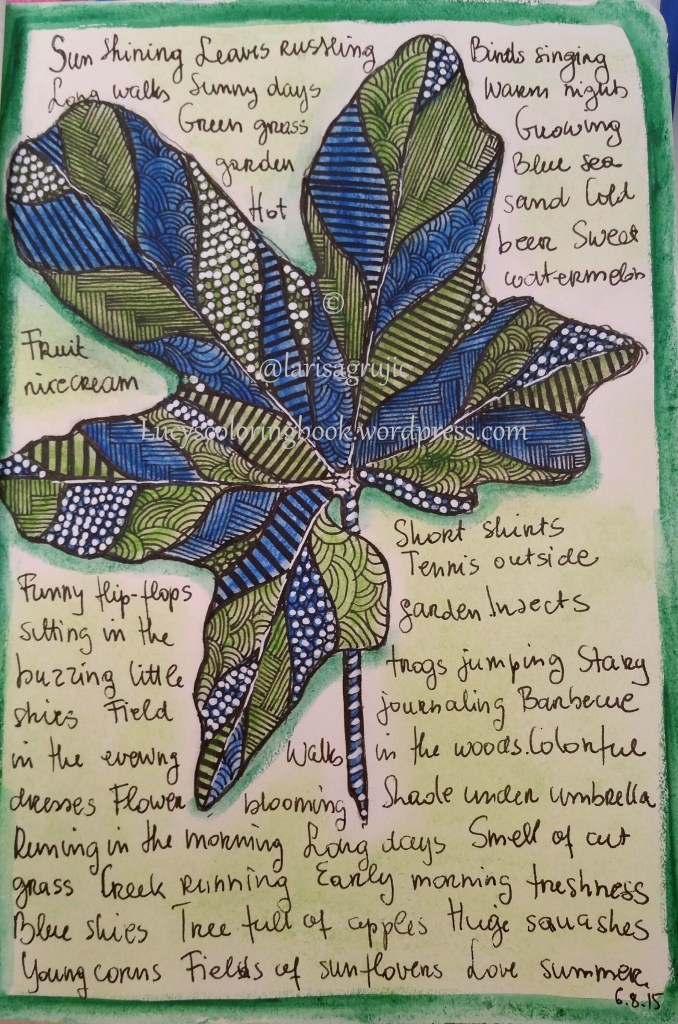 Sun shining Leaves russling Birds singing
Long walks Sunny days Warm nights
Green grass Growing
garden Blue sea
Hot sand Cold
beer Sweet
watermelon
©
Fruit
nicecream
@larisagrujic
Lucyscoloringbook.wordpress.com
Short shirts
Tennis outside
Funny flip-flops garden Insects
sitting in the
buzzing little frogs jumping Stary
skies Field journaling Barbecue
in the evening Walks in the woods. Colorful
dresses Flower blooming Shade under umbrella
Running in the morning Long days Smell of cut
grass Creek running Early morning freshness
Blue skies Tree full of apples Huge squashes
Young corns Fields of sunflovers Love summer.
6.8.15